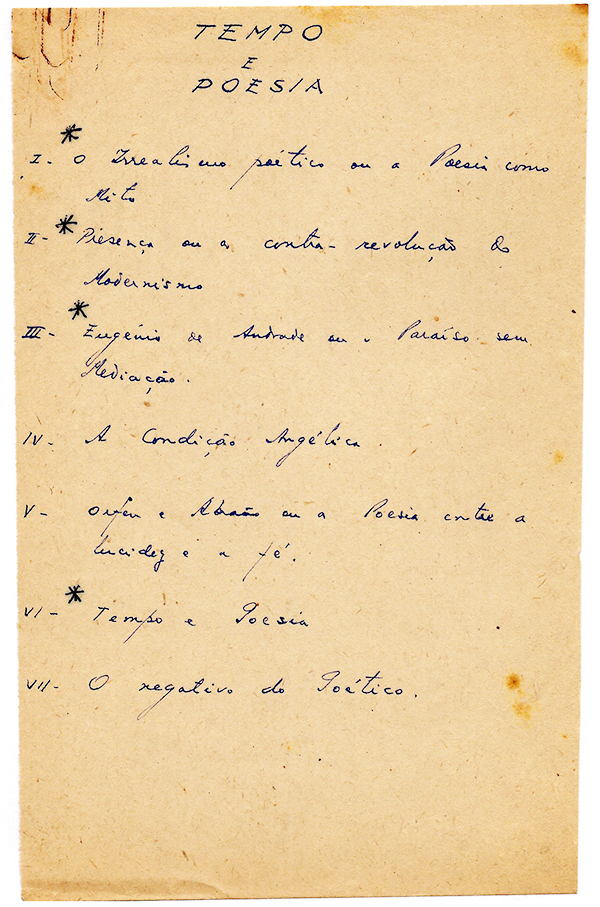 TEMPO
E
POESIA
*
I - O Irrealismo poético ou a Poesia como
Mito
*
II - Presença ou a contra-revolução do
Modernismo
*
III - Eugénio de Andrade ou o Paraíso sem
Mediação.
IV - A Condição Angélica.
V - Orfeu e Abraão ou a Poesia entre a
lucidez e a fé.
*
VI - Tempo e Poesia
VII - O negativo do Poético.